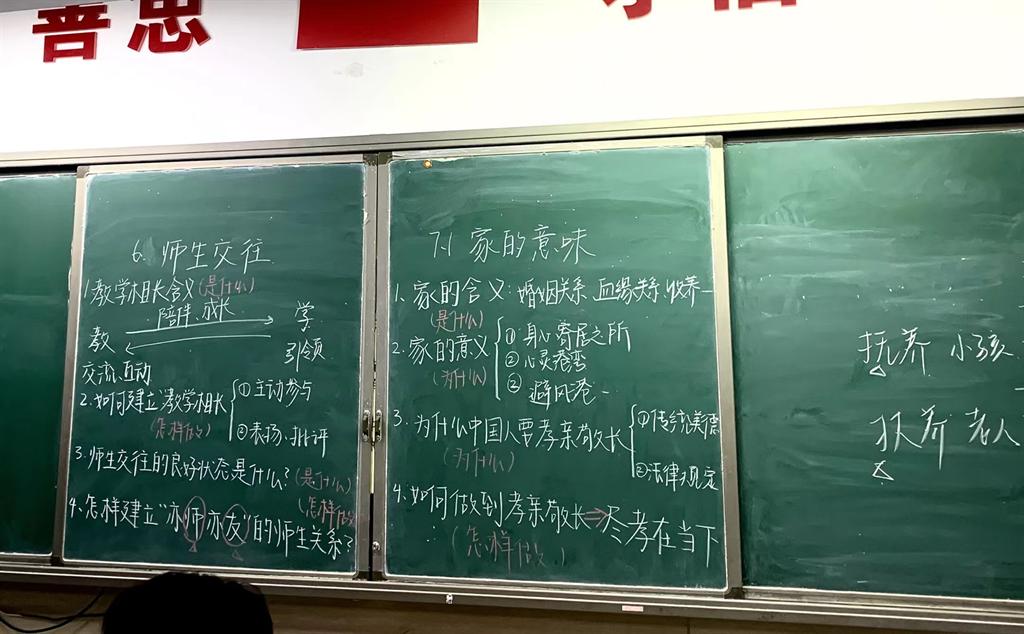 善思
6. 师生交往
1.教学相长含义(是什么)
陪伴、成长
教 学
引领
交流、互动
2.如何建立“教学相长
(怎样做)
①主动参与
②表扬、批评
3.师生交往的良好状态是什么?(是什么)
(怎样做)
4、怎样建立“亦师亦友”的师生关系?
7.1 家的意味
1、家的含义:婚姻关系、血缘关系、收养一
(是什么)
2、家的意义
(为什么)
①身心寄居之所
②心灵港湾
② 避风港一
3、为什么中国人要孝亲敬长
(为什么)
①传统美德
②法律规定
4、如何做到孝亲敬长⇒尽孝在当下
(怎样做)
抚养 小孩
扶养 老人